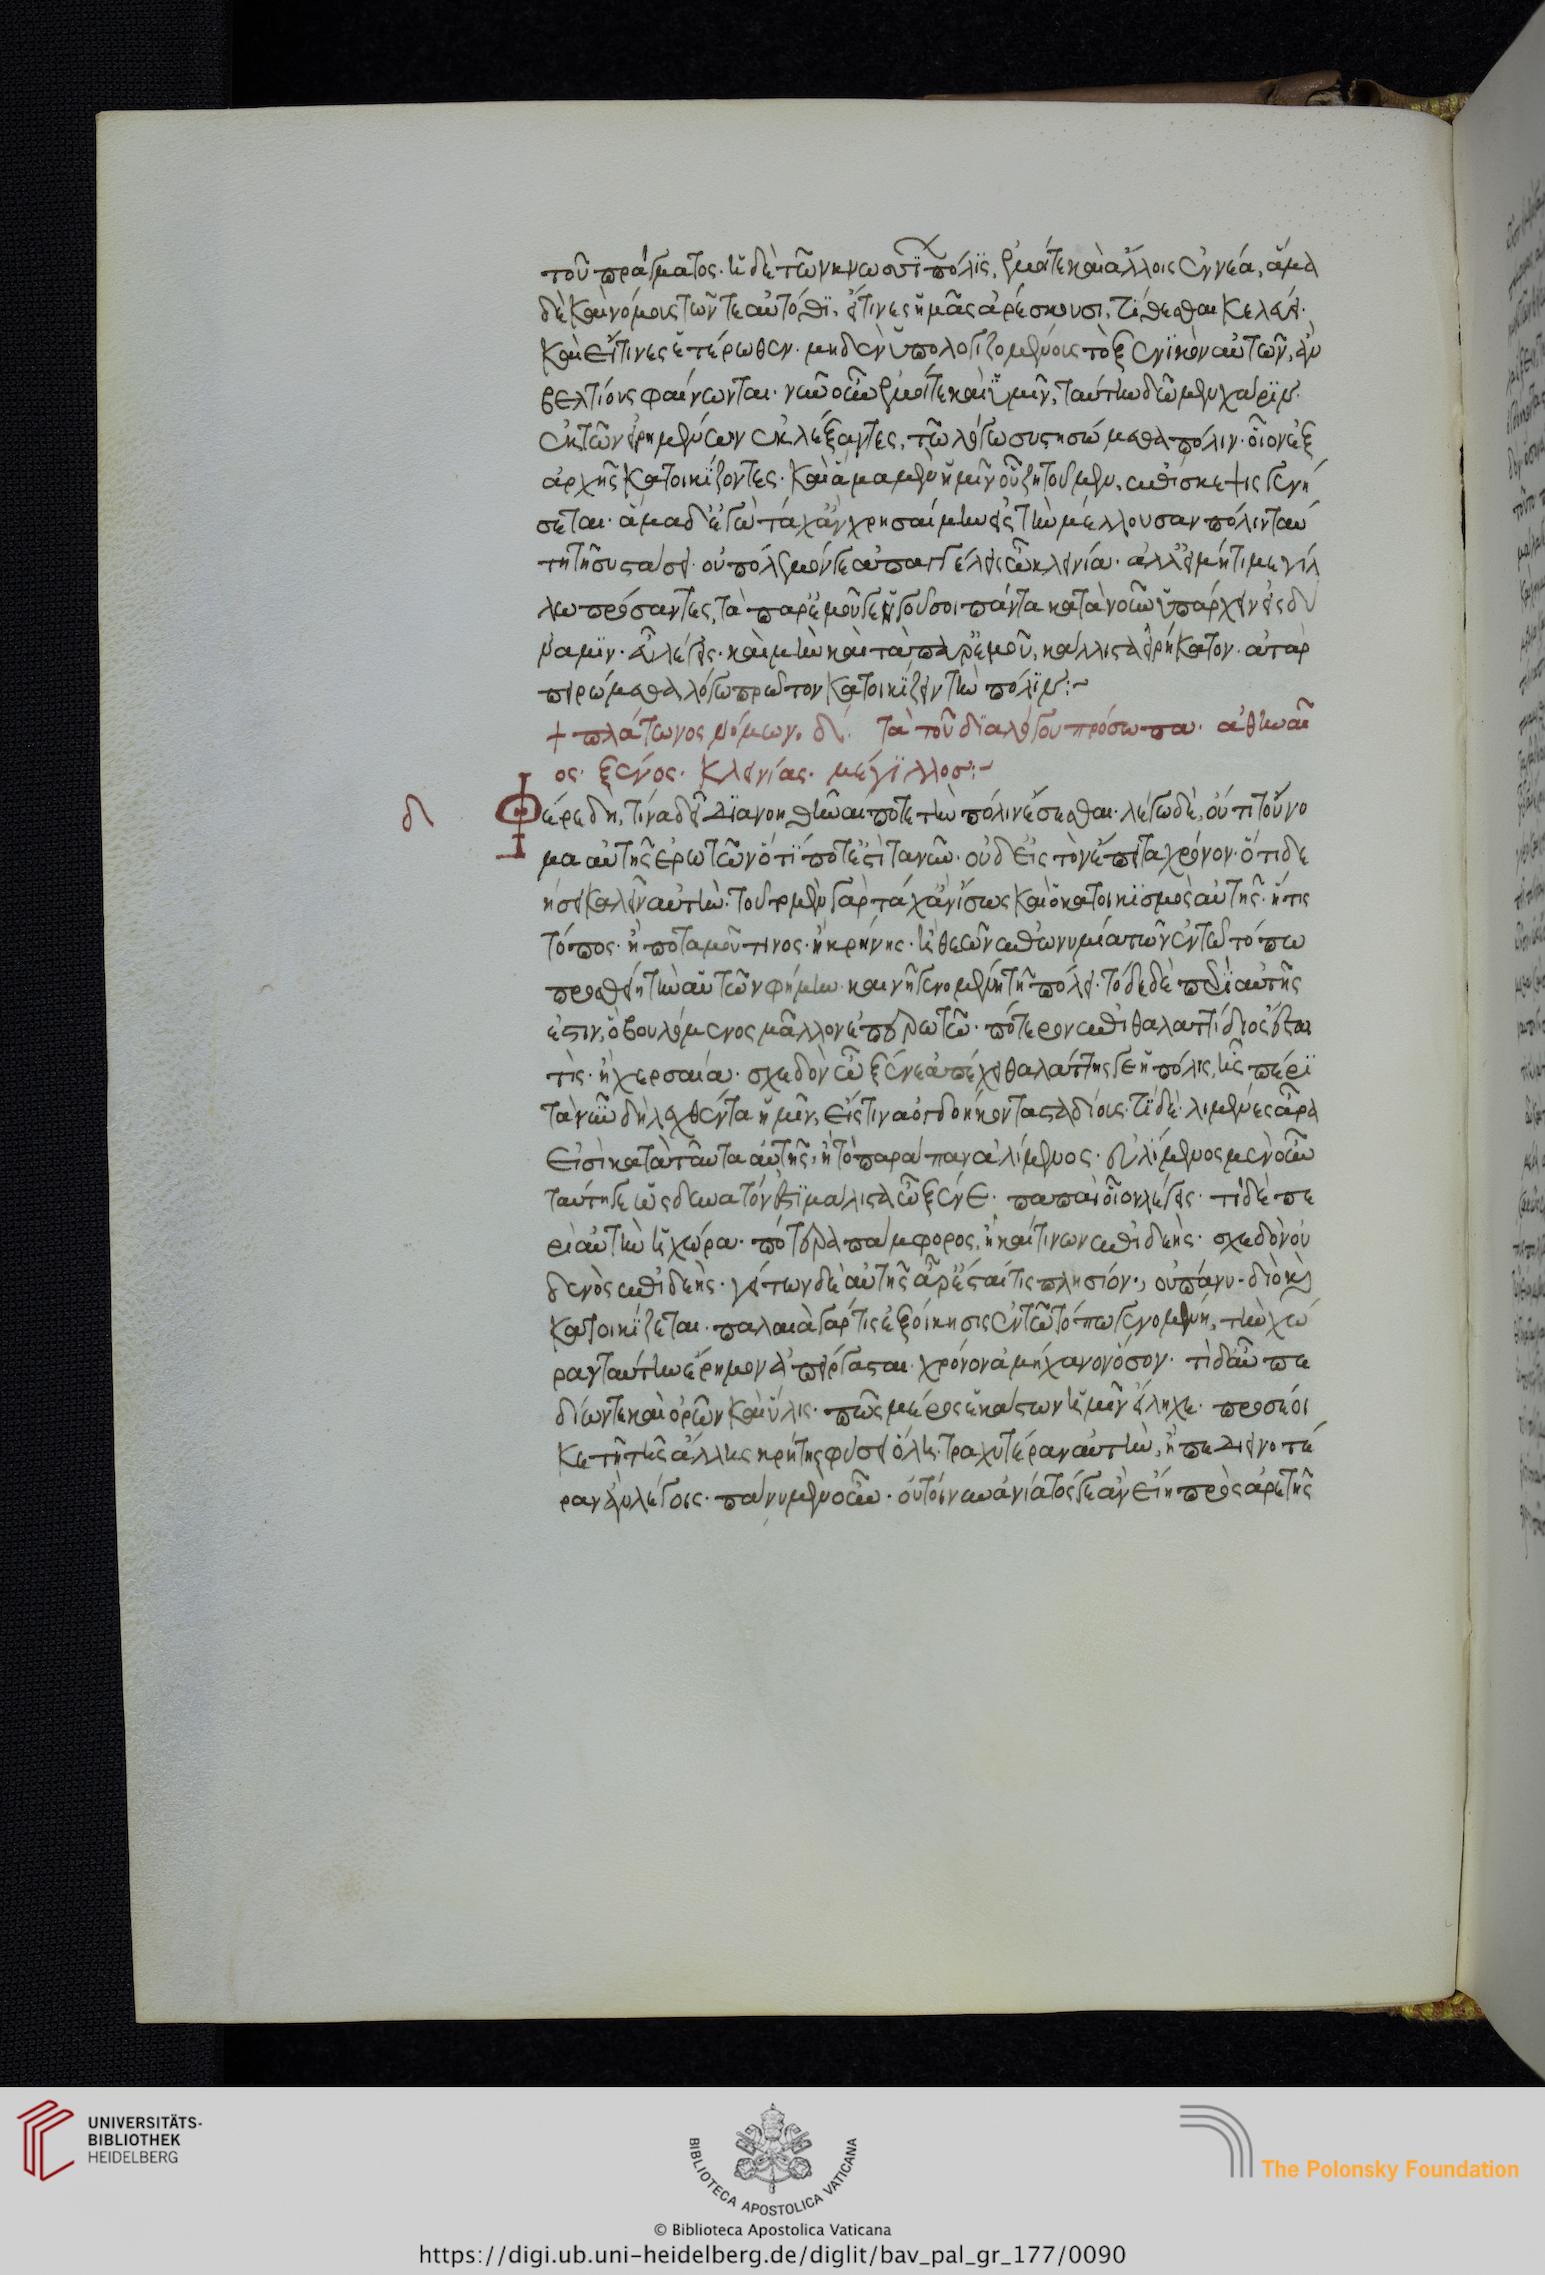 τοῦ πράγματος· ἡ δὲ τῶν κνωσίων πόλις, ἐμοί τε καὶ ἄλλοις ἐννέα, ἅμα
δὲ καὶ νόμους τῶν τε αὐτόθι, εἴ τινες ἡμᾶς ἀρέσκουσι, τίθεσθαι κελεύει·
καὶ εἴ τινες ἑτέρωθεν· μηδὲν ὑπολογιζομένους τὸ ξενικὸν αὐτῶν, ἂν
βελτίους φαίνωνται· νῦν οὖν ἐμοί τε καὶ ὑμῖν, ταύτην δῶμεν χάριν·
ἐκ τῶν εἰρημένων ἐκλέξαντες, τῷ λόγῳ συστησώμεθα πόλιν· οἷον ἐξ
ἀρχῆς κατοικίζοντες· καὶ ἅμα μὲν ἡμῖν οὗ ζητοῦμεν, ἐπίσκεψις γενή
σεται· ἅμα δὲ ἐγὼ τάχ' ἂν χρησαίμην εἰς τὴν μέλλουσαν πόλιν ταύ
τῃ τῇ συστάσει· οὐ πόλεμόν γε ἐπαγγέλλεις ὦ κλεινία· ἀλλ' εἰ μή τι μεγίλ
λῳ πρόσαντες, τὰ παρ' ἐμοῦ γε ἡγοῦ σοι πάντα κατὰ νοῦν ὑπάρχειν εἰς δύ
ναμιν· εὖ λέγεις· καὶ μὴν καὶ τὰ παρ' ἐμοῦ, κάλλιστα εἰρήκατον· ἀτὰρ
πειρώμεθα λόγῳ πρῶτον κατοικίζειν τὴν πόλιν:~
+ πλάτωνος νόμων. δ΄. τὰ τοῦ διαλόγου πρόσωπα· ἀθηναῖ
ος· ξένος· κλεινίας· μέγιλλος:~
δ Φέρε δὴ, τίνα δεῖ διανοηθῆναί ποτε τὴν πόλιν ἔσεσθαι· λέγω δὲ, οὔ τι τοὔνο
μα αὐτῆς ἐρωτῶν ὅ τί ποτέ ἐστὶ τανῦν· οὐδ' εἰς τὸν ἔπειτα χρόνον· ὅ τι δε
ήσει καλεῖν αὐτήν· τοῦτο μὲν γὰρ τάχ' ἂν ἴσως καὶ ὁ κατοικισμὸς αὐτῆς· ἤ τις
τόπος· ἢ ποταμοῦ τινος· ἢ κρήνης· ἢ θεῶν ἐπωνυμία τῶν ἐν τῷ τόπῳ
προσθείη τὴν αὑτῶν φήμην καινῇ γενομένῃ τῇ πόλει· τόδε δὲ περὶ αὐτῆς
ἐστιν, ὃ βουλόμενος μᾶλλον ἐπερωτῶ· πότερον ἐπιθαλαττίδιος ἔσται
τὶς· ἢ χερσαία· σχεδὸν ὦ ξένε ἀπέχει θαλάττης γε ἡ πόλις, ἧς πέρι
τὰ νῦν δὴ λεχθέντα ἡμῖν, εἴς τινα ὀγδοήκοντα σταδίους· τί δὲ· λιμένες ἆρα
εἰσὶ κατὰ ταῦτα αὐτῆς, ἢ τὸ παράπαν ἀλίμενος· εὐλίμενος μὲν οὖν
ταύτῃ γε ὡς δυνατόν ἐστι μάλιστα ὦ ξένε· παπαὶ οἷον λέγεις· τί δὲ πε
ρὶ αὐτὴν ἡ χώρα· πότερα πάμφορος, ἢ καί τινων ἐπιδεής· σχεδὸν οὐ
δενὸς ἐπιδεής· γείτων δὲ αὐτῆς ἆρ' ἔσται τις πλησίον., οὐ πάνυ· διὸ καὶ
κατοικίζεται· παλαιὰ γάρ τις ἐξοίκησις ἐν τῷ τόπῳ γενομένη, τὴν χώ
ραν ταύτην ἔρημον ἀπείργασται· χρόνον ἀμήχανον ὅσον· τί δ' αὖ πε
δίων τε καὶ ὀρῶν καὶ ὕλης· πῶς μέρος ἑκάστων ἡμῖν εἴληχε· προσέοι
κε τῇ τῆς ἄλλης κρήτης φύσει ὅλη· τραχυτέραν αὐτὴν, ἢ πεδιεινοτέ
ραν ἂν λέγοις· πάνυ μὲν οὖν· οὐ τοίνυν ἀνίατός γε ἂν εἴη πρὸς ἀρετῆς
UNIVERSITÄTS-
BIBLIOTHEK
HEIDELBERG
BIBLIOTECA APOSTOLICA VATICANA
The Polonsky Foundation
© Biblioteca Apostolica Vaticana
https://digi.ub.uni-heidelberg.de/diglit/bav_pal_gr_177/0090